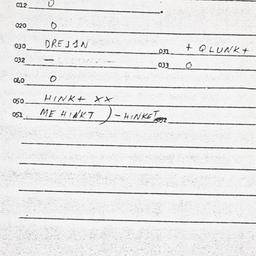 012 0
020 0
030 DREJIN 031 + QLUNK+
032 — 033 0
040 0
050 HINK+ XX
051 ME HINKT ) - HINKET